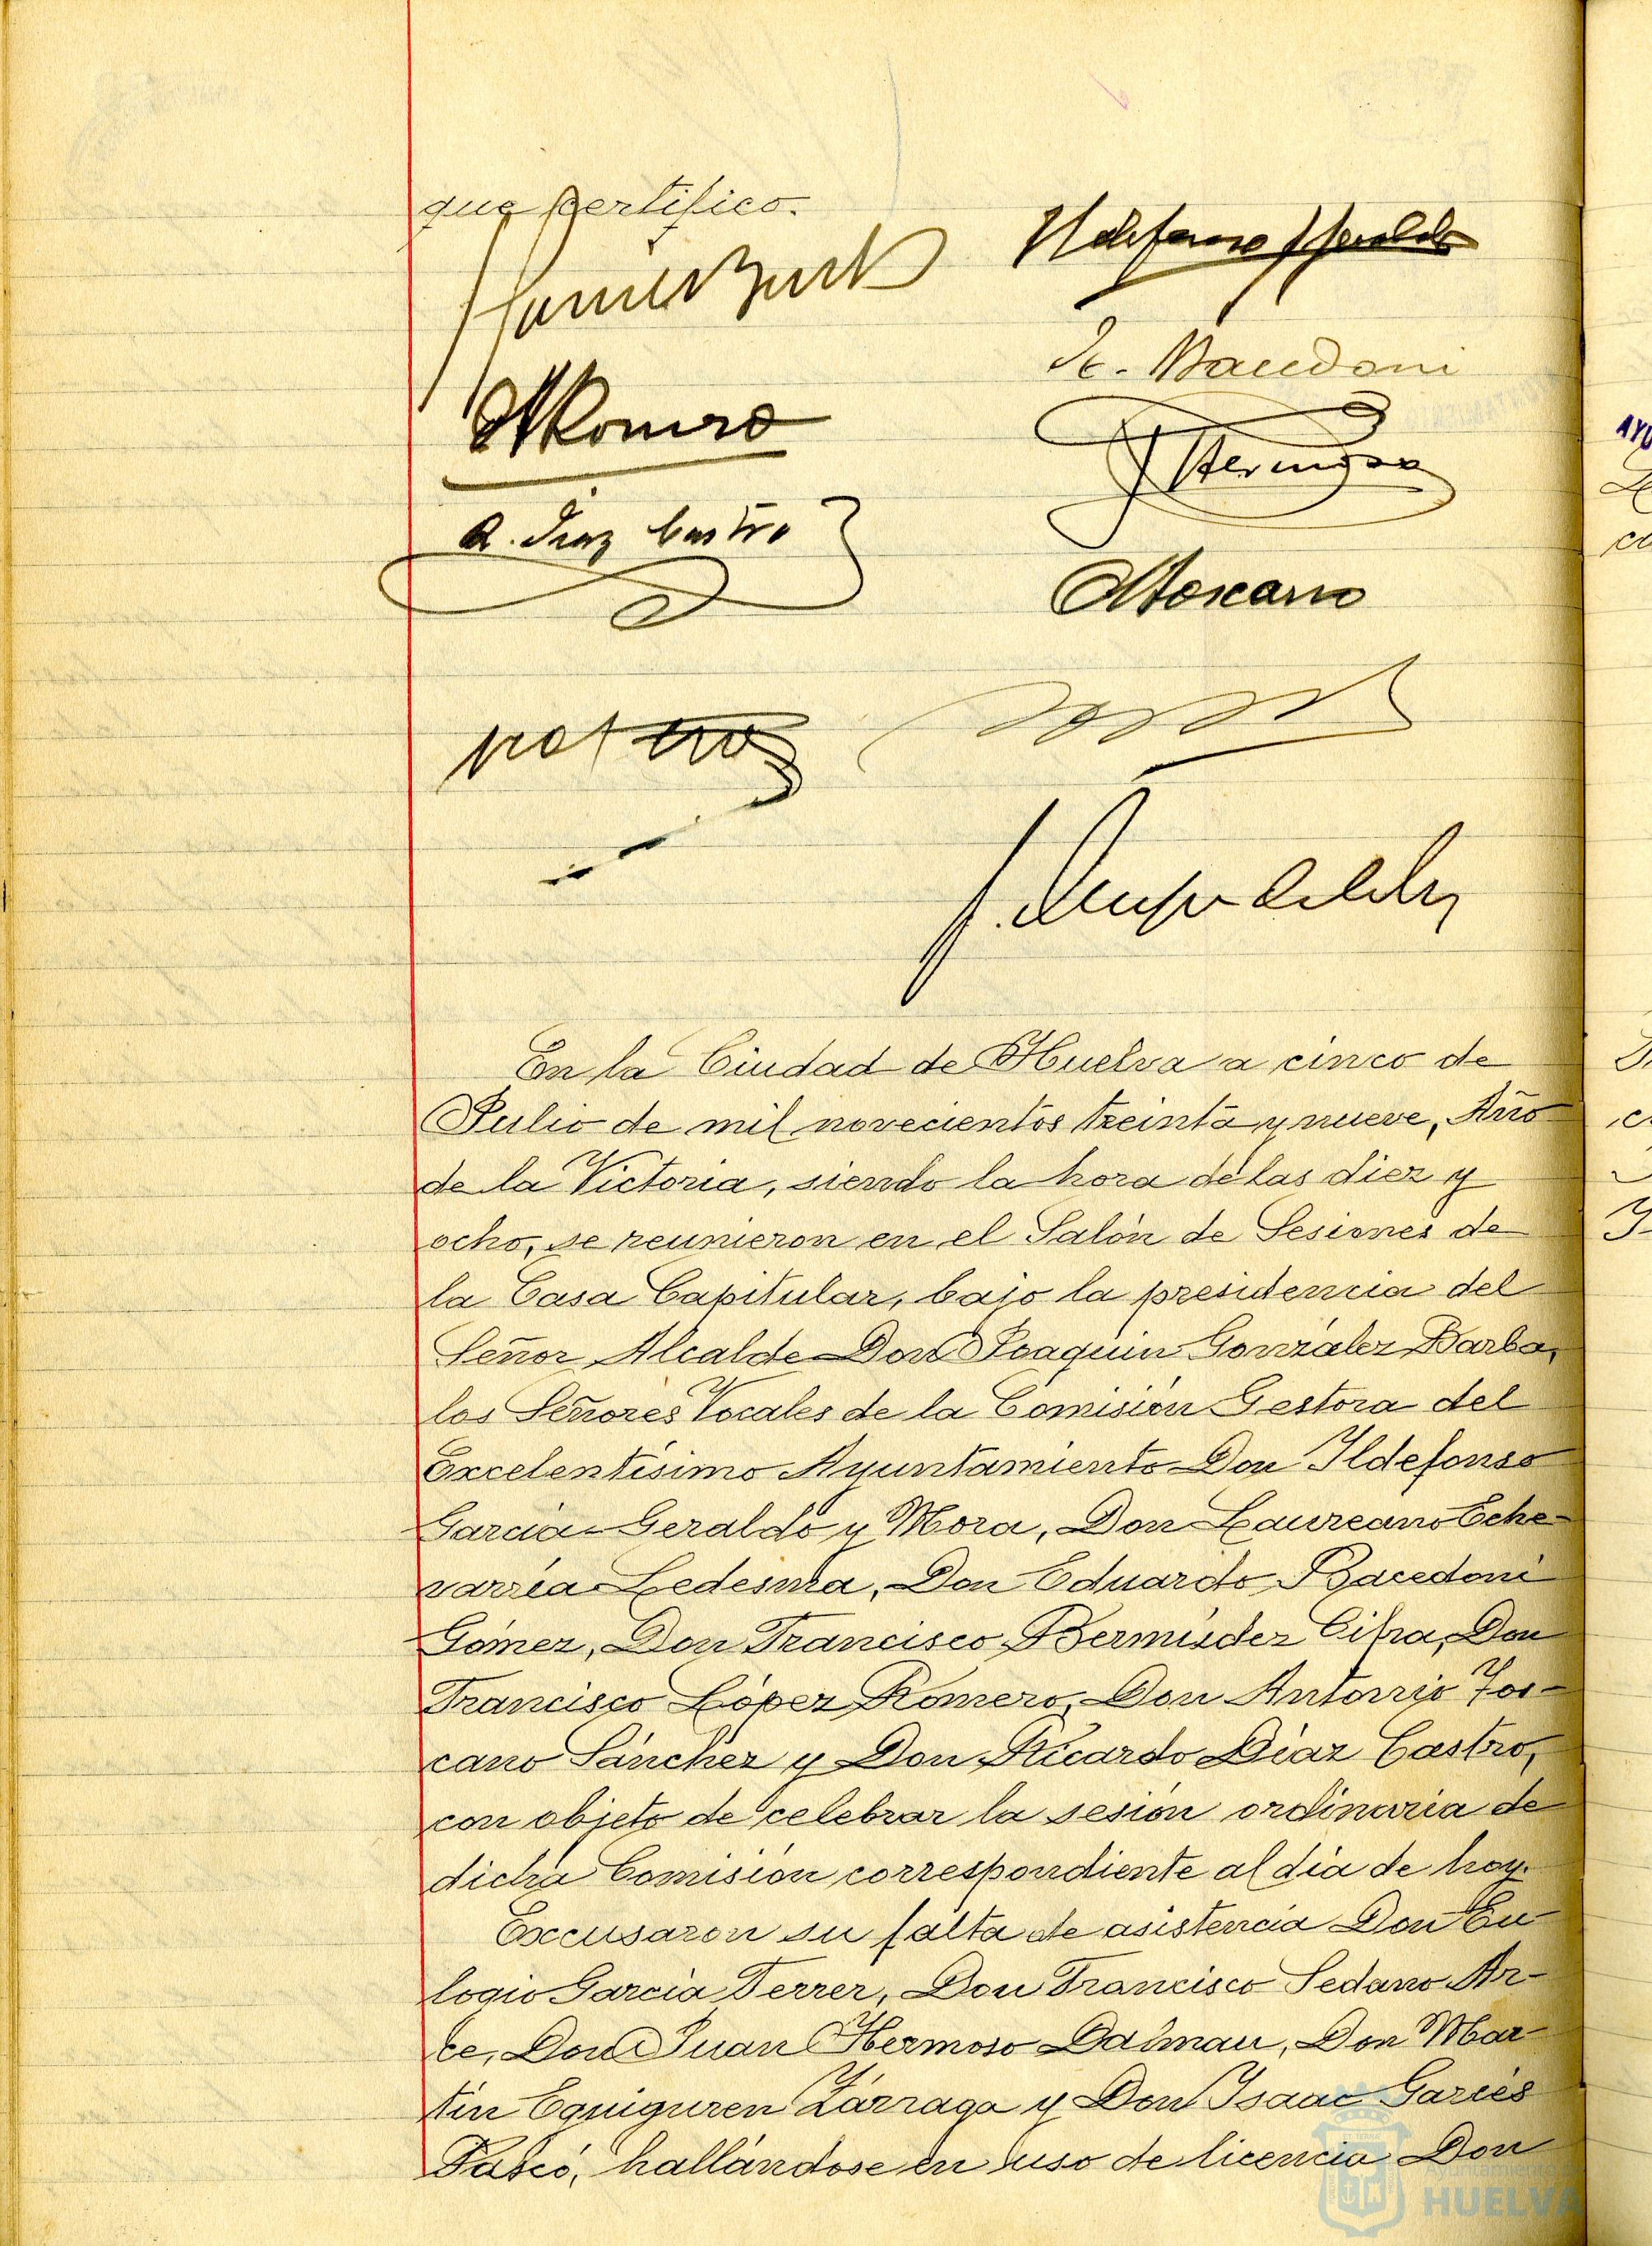 que certifico.
Ildefonso Geraldo
E. Bacedoni
Romero
Hermoso
R. Diaz Castro
A Toscano
En la Ciudad de Huelva a cinco de
Julio de mil novecientos treinta y nueve, Año
de la Victoria, siendo la hora de las diez y
ocho, se reunieron en el Salón de Sesiones de
la Casa Capitular, bajo la presidencia del
Señor Alcalde Don Joaquin González Barba,
los Señores Vocales de la Comisión Gestora del
Excelentísimo Ayuntamiento Don Ildefonso
Garcia-Geraldo y Mora, Don Laureano Eche-
varria Ledesma, Don Eduardo Bacedoni
Gómez, Don Francisco Bermúdez Cifra, Don
Francisco López Romero, Don Antonio Tos-
cano Sánchez y Don Ricardo Diaz Castro,
con objeto de celebrar la sesión ordinaria de
dicha Comisión correspondiente al dia de hoy.
Excusaron su falta de asistencia Don Eu-
logio Garcia Ferrer, Don Francisco Sedano Ar-
ce, Don Juan Hermoso Dalmau, Don Mar-
tin Eguiguren Zárraga y Don Isaac Garcés
hallándose en uso de licencia Don
Ayuntamiento de
HUELVA